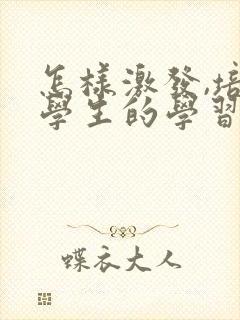 怎樣激發,培
學生的學習
蝶衣大人